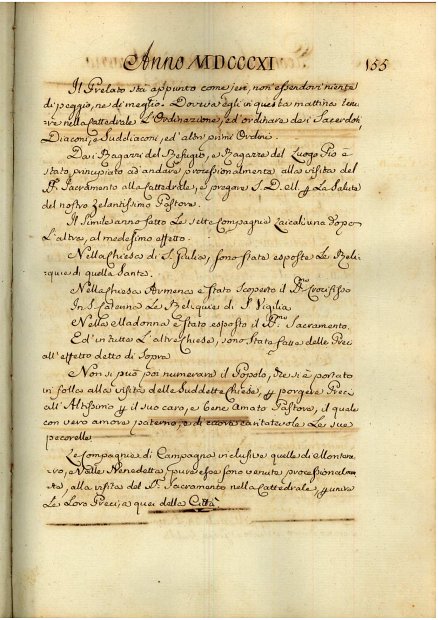 Anno MDCCCXI
155
Il Prelato stà appunto come jeri, non'essendovi niente
di peggio, ne di meglio. Doveva egli in questa mattina tene
re nella Cattedrale L'Ordinazione, ed'ordinare dei Sacerdoti
Diaconi, e Suddiaconi, ed'altri primi Ordini.
Dai Ragazzi del Refugio, e Ragazze del Luogo Pio è
stato principiato ad'andare processionalmente alla visita del
SS. Sacramento alla Cattedrale, e pregare S. D. M. p La Salute
del nostro Zelantissimo Pastore.
Il Simile anno fatto Le sette Compagnie Laicali una dopo
L'altra, al medesimo effetto.
Nella Chiesa di S. Giulia, sono state esposte Le Reli-
quie di quella Santa.
Nella Chiesa Armena è stato scoperto il SSmo Crocifisso
In S. Caterina Le Reliquie di S. Vigilia
Nella Madonna è stato esposto il SSmo Sacramento.
Ed'in tutte L'altre Chiese, sono state fatte delle Preci
all'effetto detto di sopra
Non si può poi numerare il Popolo, che si è portato
in folla alla visita delle Suddette Chiese, p porgere Preci
all'Altissimo p il suo caro, e bene Amato Pastore, il quale
con vero amore paterno, e di cuore caritatevole Le sue
pecorelle
Le Compagnie di Campagna inclusive quelle di Montene
ro, e Valle Benedetta, pure esse sono venute processionalmen
te, alla visita del SS. Sacramento nella Cattedrale, p unire
Le Loro Preci, a quei della Città